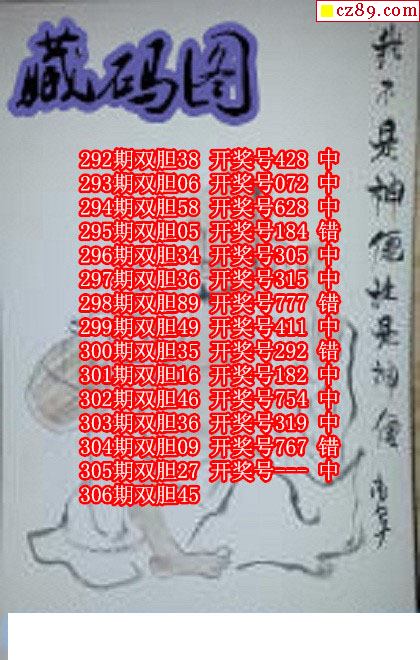 cz89.com
藏码图
292期双胆38 开奖号428 中
293期双胆06 开奖号072 中
294期双胆58 开奖号628 中
295期双胆05 开奖号184 错
296期双胆34 开奖号305 中
297期双胆36 开奖号315 中
298期双胆89 开奖号777 错
299期双胆49 开奖号411 中
300期双胆35 开奖号292 错
301期双胆16 开奖号182 中
302期双胆46 开奖号754 中
303期双胆36 开奖号319 中
304期双胆09 开奖号767 错
305期双胆27 开奖号--- 中
306期双胆45
我不是神仙
是神仙